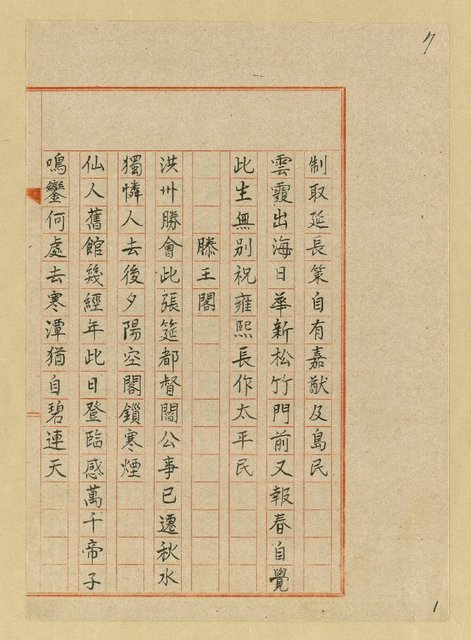 7
制取延長策自有嘉猷及島民
雲霞出海日華新松竹門前又報春自覺
此生無別祝雍熙長作太平民
滕王閣
洪州勝會此張筵都督閻公事已遷秋水
獨憐人去後夕陽空閣鎖寒煙
仙人舊館幾經年此日登臨感萬千帝子
鳴鑾何處去寒潭猶自碧連天
1